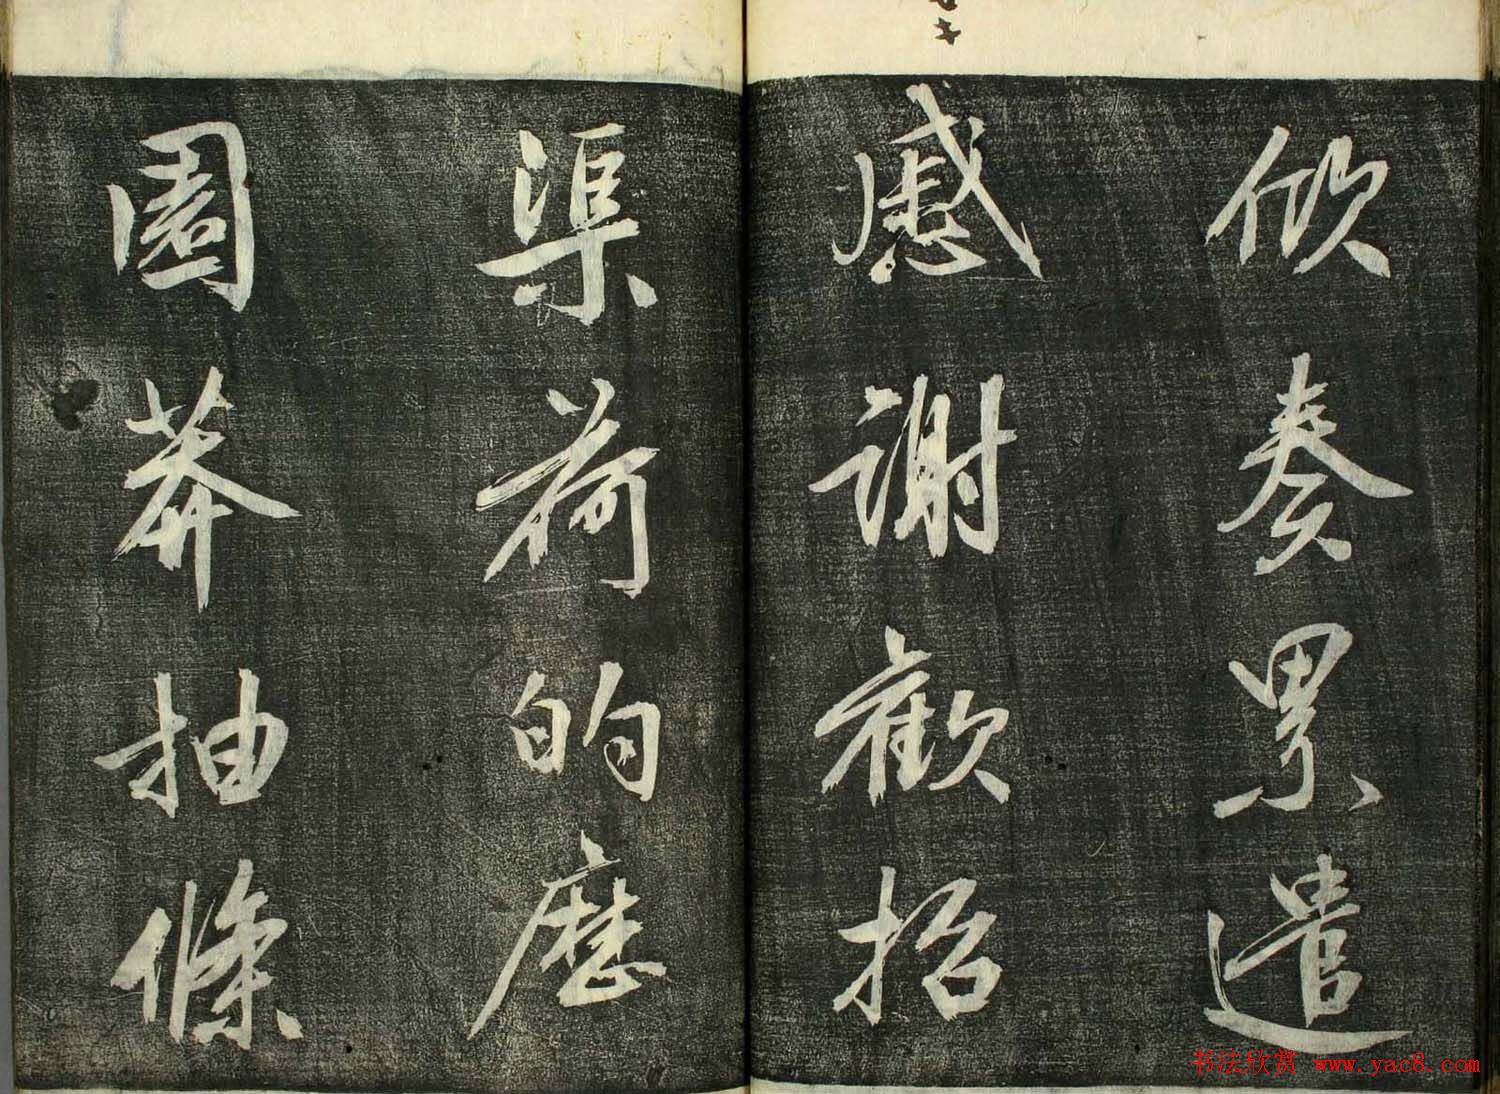 欣奏累遣
慼謝歡招
渠荷的歷
園莽抽條
书法欣赏 www.yac8.com